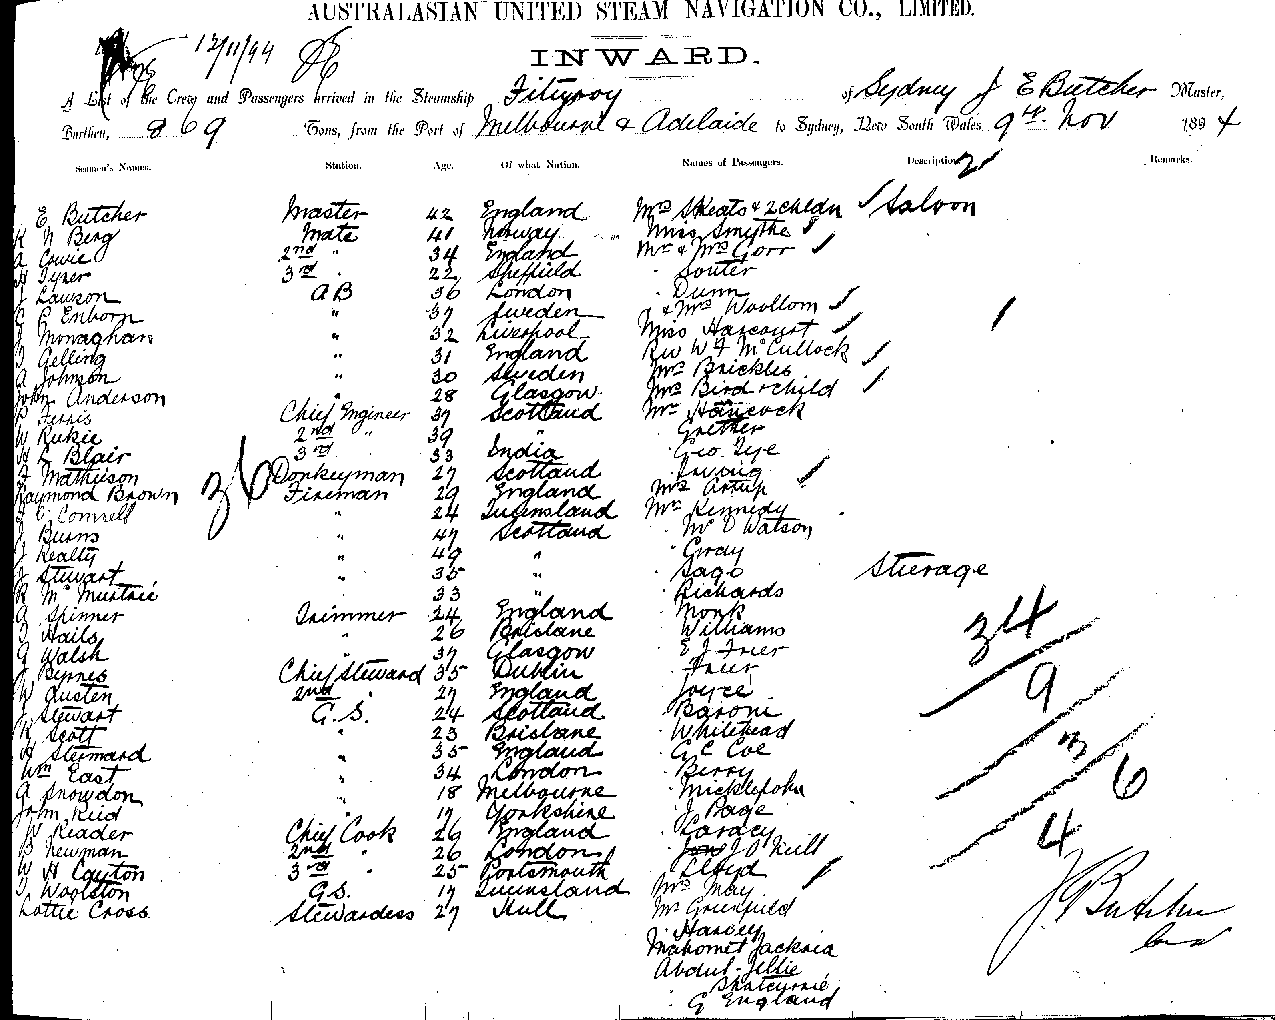 AUSTRALASIAN UNITED STEAM NAVIGATION CO., LIMITED.
12/11/94
INWARD.
A List of the Crew and Passengers arrived in the Steamship Fitzroy of Sydney J E Butcher Master,
Burthen, 869 Tons, from the Port of Melbourne & Adelaide to Sydney, New South Wales 9th Nov 1894
Seamen's Names. Station. Age. Of what Nation. Names of Passengers. Description Remarks.
E Butcher Master 42 England Mrs Skeats & 2 chldn Saloon
N Berg Mate 41 Norway Miss Smythe
A Cowie 2nd " 34 England Mr & Mrs Gorr
Tyrer 3rd 22 Sheffield Souter
J Lawson AB 36 London Dunn
C E Enborn " 37 Sweden & Mrs Woollom
Monaghan " 32 Liverpool Miss Harcourt
Gelling " 31 England Rev W F McCullock
A Johnson " 30 Sweden Mrs Brickles
John Anderson " 28 Glasgow Mrs Bird & child
P Ferris Chief Engineer 37 Scotland Mr Hancock
W Rukie 2nd " 39 " Grether
Blair 3rd 33 India Geo Tye
Mathieson Donkeyman 27 Scotland Irving
Raymond Brown Fireman 29 England Mrs
36
" 24 Queensland Mr Kennedy
J Burns " 47 Scotland Mr D Watson
J Kealty " 49 " Gray
J Stewart " 35 " Sago Steerage
R McMurtrie " 33 " Richards
A Spinner Trimmer 24 England Monk
Hails " 26 Brisbane Williams
G Walsh " 37 Glasgow E J Frier
J Byrnes Chief Steward 35 Dublin Frier
W Austen 2nd " 27 England Joyce
J Stewart G.S. 24 Scotland Baroni
R Scott " 23 Brisbane Whitehead
" 35 England G C Coe
Wm East " 34 London Berry
A Snowdon " 18 Melbourne Micklejohn
John Reid " 17 Yorkshire J Page
W Reader Chief Cook 26 England
B Newman 2nd " 26 London J O Neill
W H Cayton 3rd " 25 Portsmouth Lloyd
Woolston G.S. 17 Queensland Mrs May
Lottie Cross Stewardess 27 Hull Mr Greenfield
Harvey
Mahomet Jacksia
Abdul
G England
34
9
3/6
4
J Butcher